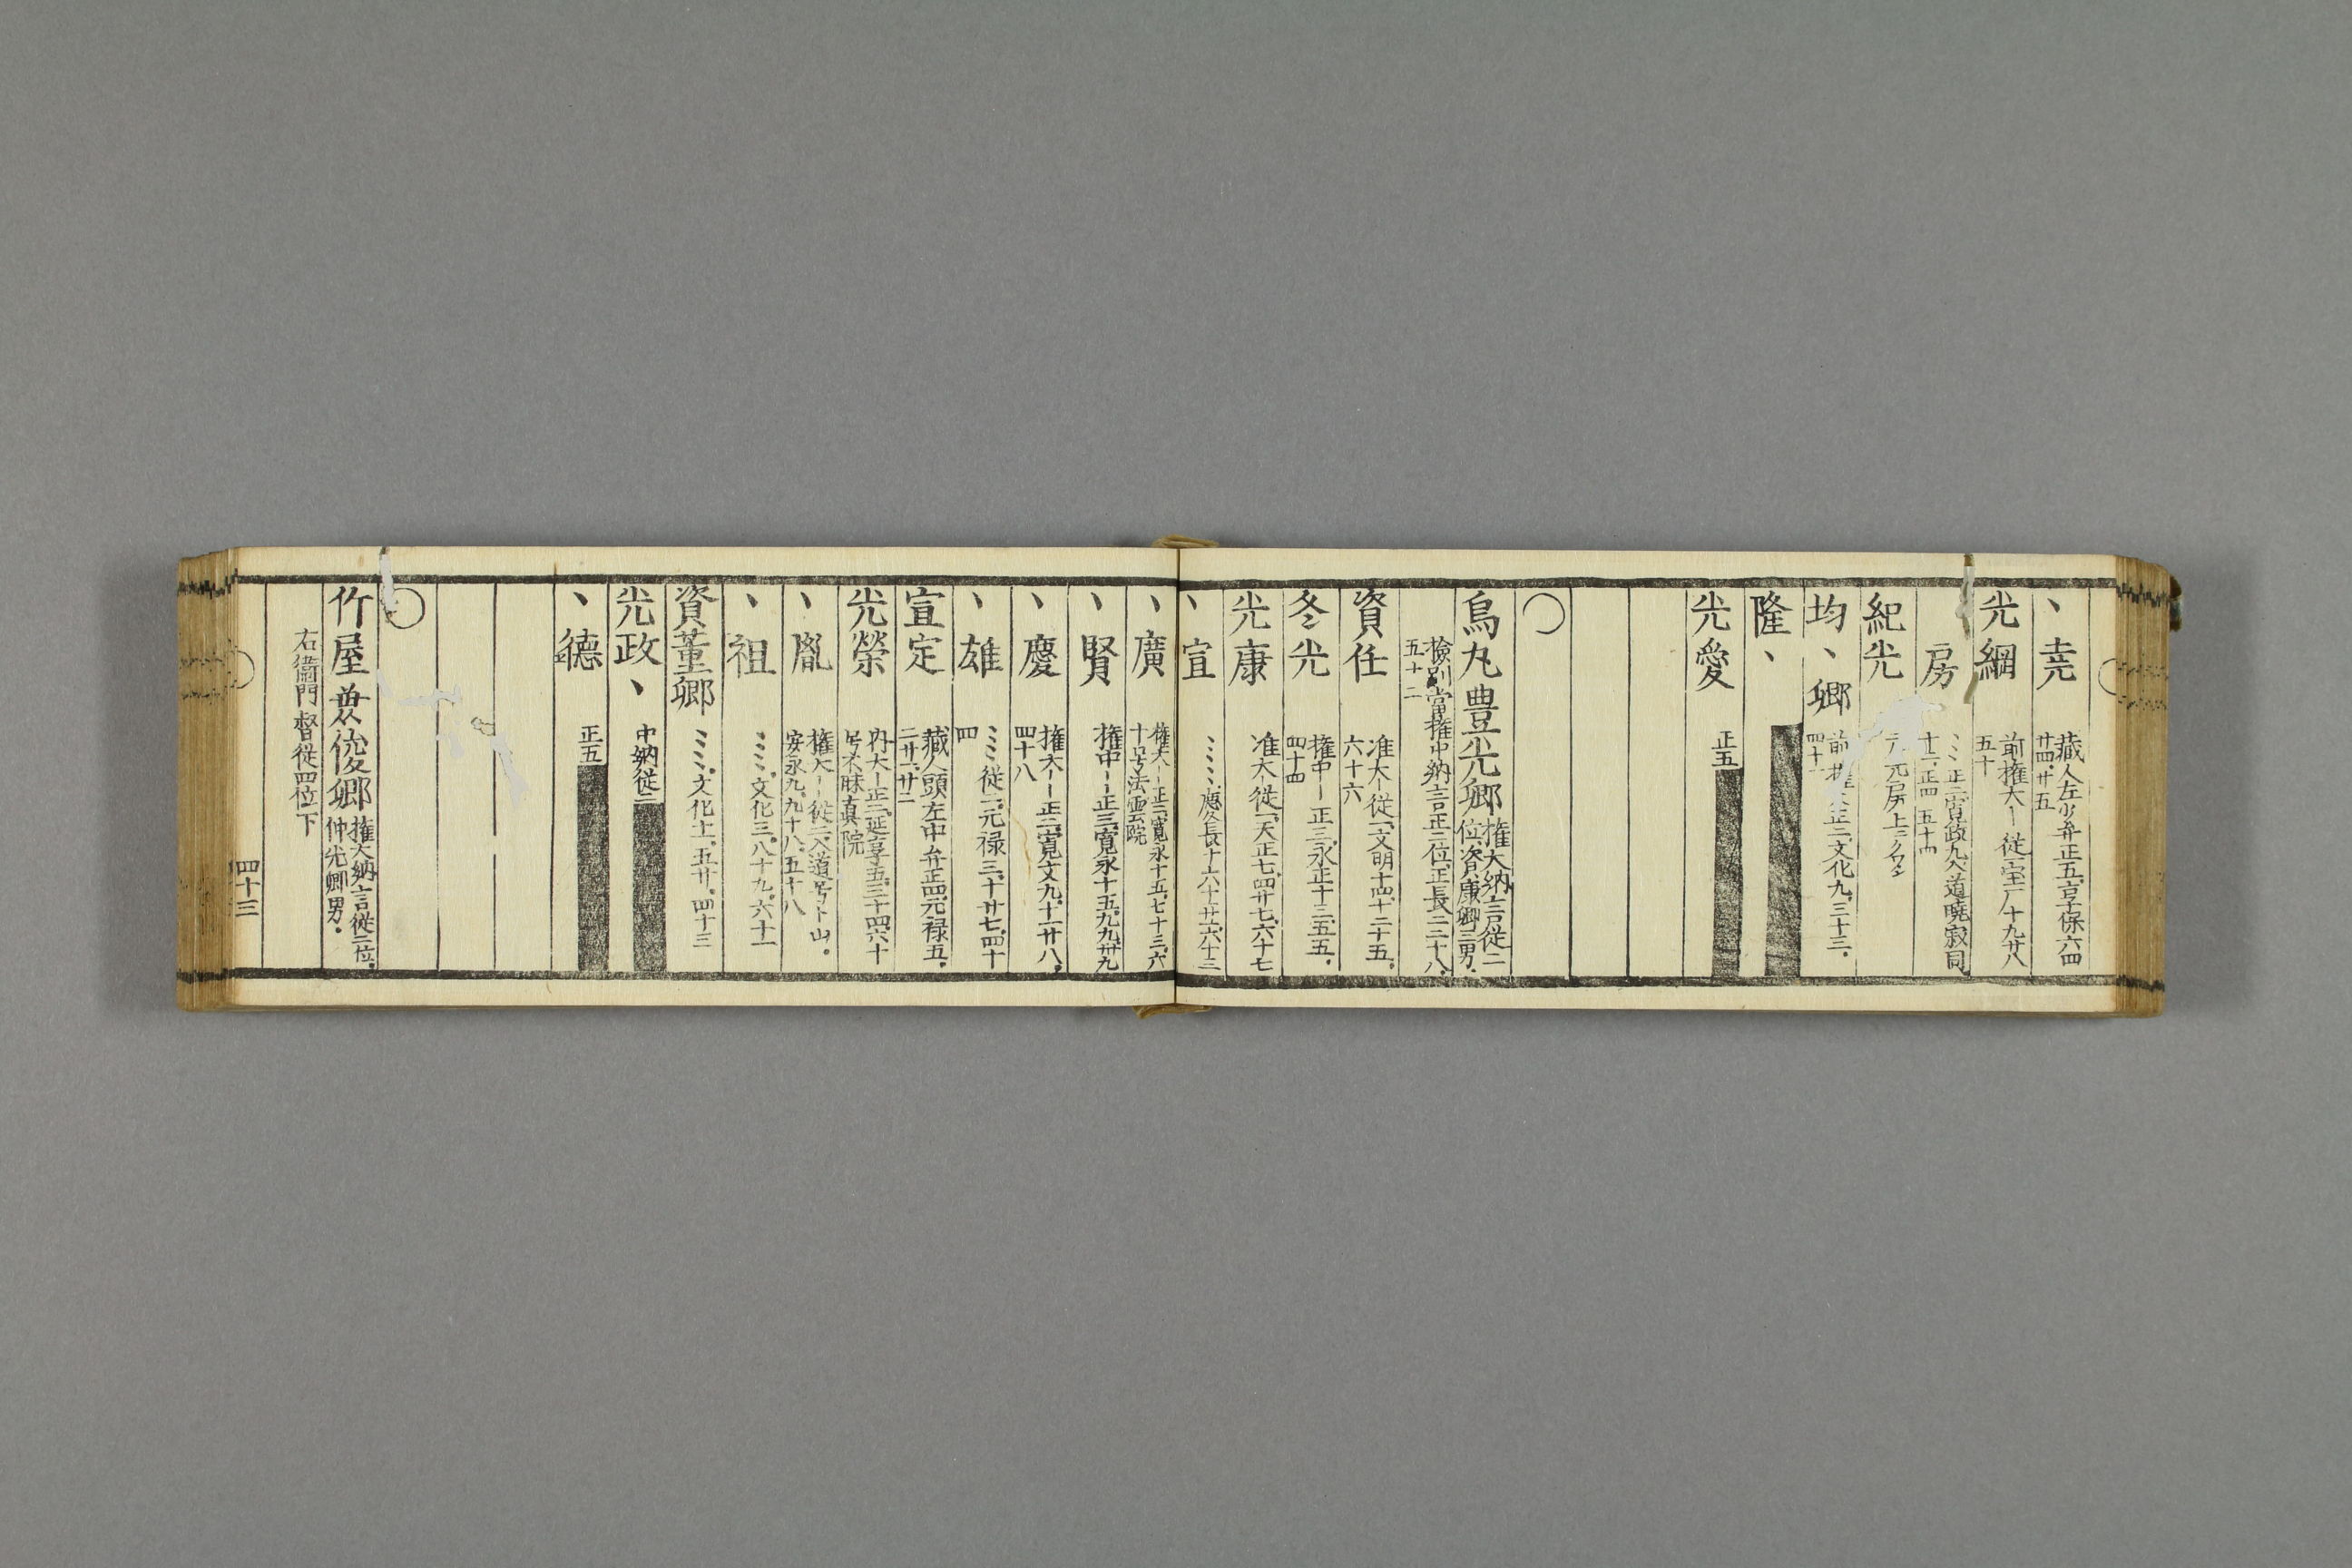 丶堯 藏人左少弁正五、享保六四
廿四、廿五
光綱 前權大〡從 十九廿八
五十
房 正二寛政九入道曉寂同
十二、正四 五十四
紀光
均丶卿 前權大正二、文化九、三十三、
四十一
隆丶
光愛 正五
〇
烏丸豊光卿 權大納言從二
位、資康卿三男、
檢別當權中納言正二位、正長二二十八、
五十二
資任 准大〡從一、文明十四、十二十五、
六十六
冬光 權中〡正三、永正十三、五五、
四十四
光康 准大〡從一、天正七、四廿七、六十七
丶宣 ミミ、慶長十六十一廿一、六十三
丶廣 權大〡正二、寛永十五、七十三、六
十号法雲院
丶賢 權中〡正三、寛永十五、九、九、卅九
丶慶 權大〡正二、寛文九、十一廿八、
四十八
丶雄 ミミ從一、元禄三、十廿七、四十
四
宣定 藏人頭左中弁正四、元禄五、
二廿一、廿二
光榮 内大〡正二、延享五、三十四、六十
号不昧真院
丶胤 權大〡從二入道号卜山。
安永九、九十八、五十八
丶祖 ミミ、文化三、八十九、六十一
資董卿 ミミ、文化十一、五廿、四十三
光政丶 中納從二
丶德 正五
〇
竹屋兼俊卿 權大納言從二位、
仲光卿男。
右衞門督從四位下
四十三